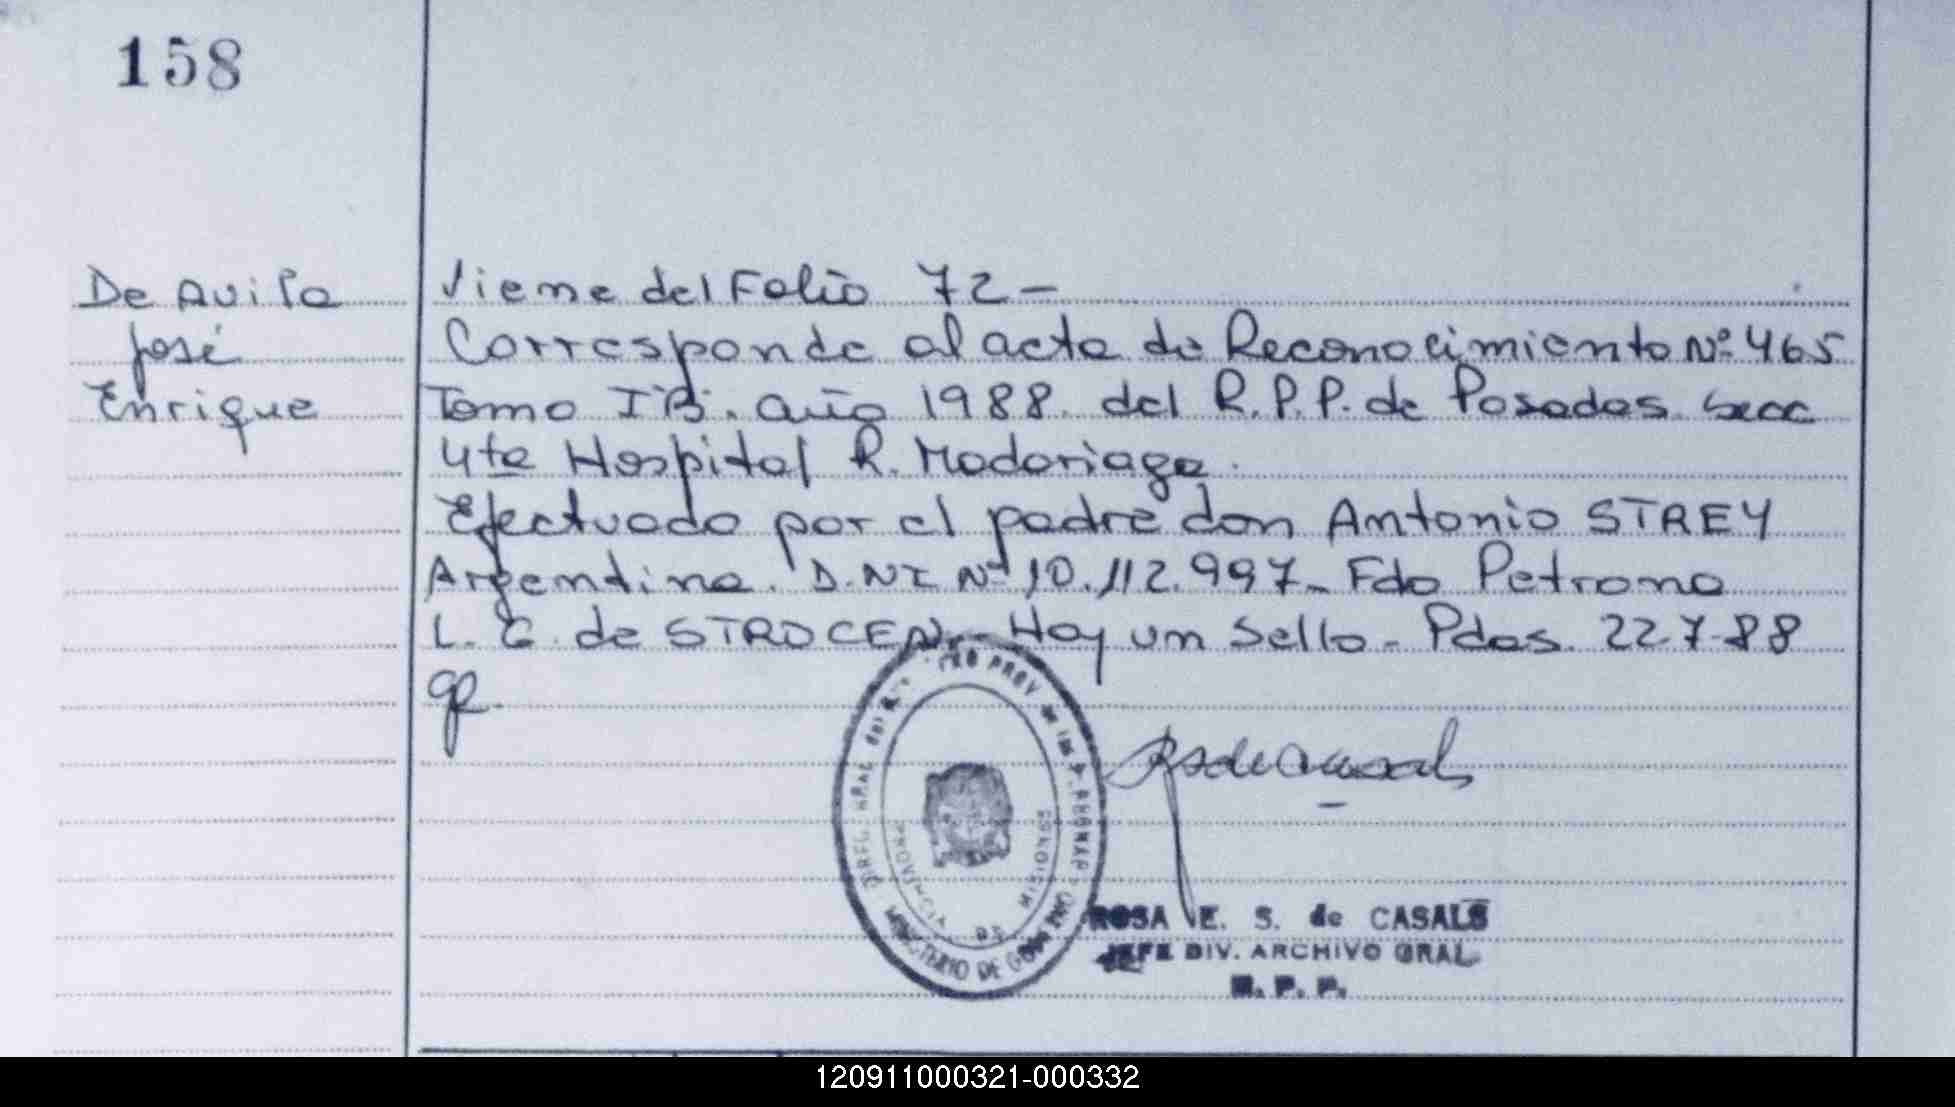 158
De Avila
José
Enrique
Viene del Folio 72-
Corresponde al acta de Reconocimiento Nº 465
Tomo I"B". año 1988. del R.P.P. de Posadas secc
4ta Hospital R. Madariaga.
Efectuado por el padre don Antonio STREY
Argentino. D.NI Nº 10.112.997- Fdo Petrona
L. G. de STROCEN.- Hay un sello- Pdas. 22-7-88
MINISTERIO DE GOBIERNO
PROVINCIA DE MISIONES
ROSA E. S. de CASALS
JEFE DIV. ARCHIVO GRAL.
R. P. P.
120911000321-000332